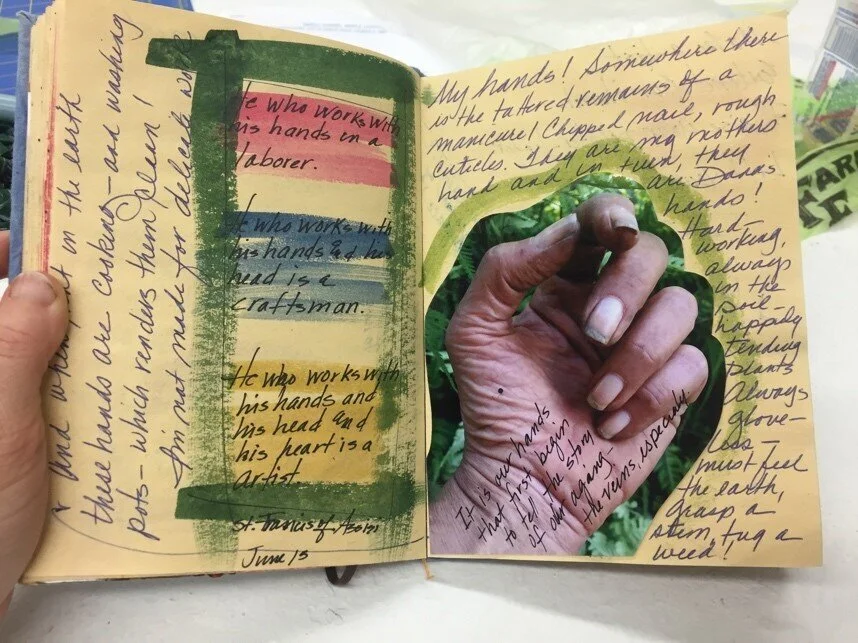 And when not in the earth
these hands are cooking – and washing
pots – which renders them clean!
I'm not made for delicate work
He who works with
his hands in a
laborer.
He who works with
his hands & his
head is a
craftsman.
He who works with
his hands and
his head and
his heart is a
artist.
St. Francis of Assisi
June 15
My hands! Somewhere there
is the tattered remains of a
manicure! Chipped nail, rough
cuticles. They are my mothers
hand and in turn, they
are Danas
hands!
Hard-
working,
always
in the
soil –
happily
tending
plants
Always
glove-
less –
must feel
the earth,
grasp a
stem, tug a
weed!
It is our hands
that first begin
to tell the story
of our aging –
the veins, especially